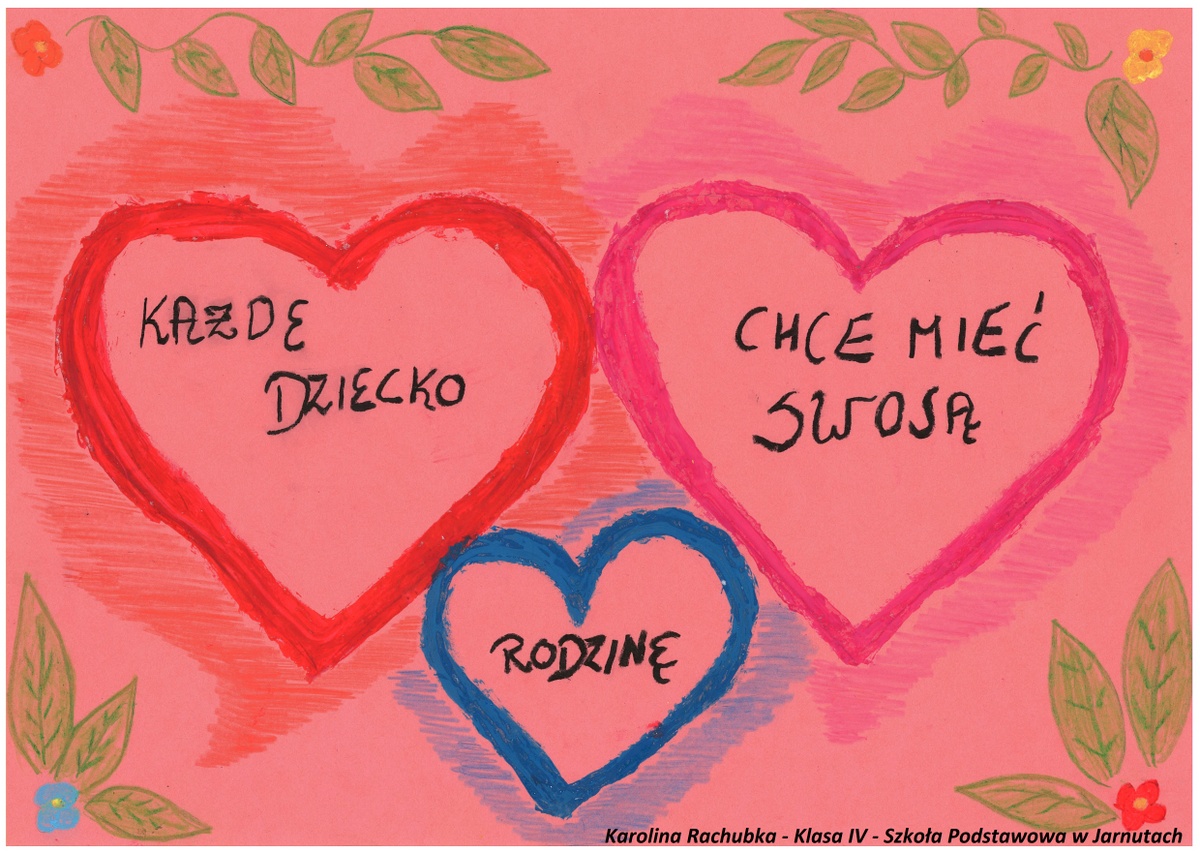 KAŻDĘ
DZIECKO
CHCE MIEĆ
SWOJĄ
RODZINĘ
Karolina Rachubka - Klasa IV - Szkoła Podstawowa w Jarnutach